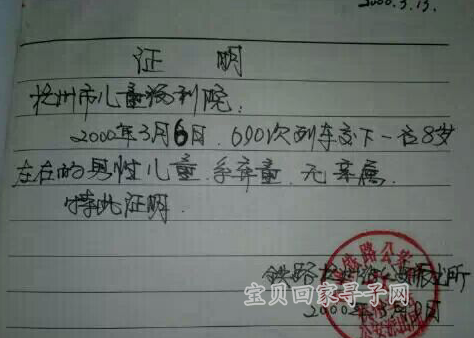 2000.3.13.
证 明
杭州市儿童福利院:
2000年3月6日,690次列车交下一名8岁
左右的男性儿童,系弃童,无亲属.
特此证明.
铁路杭州 派出所
宝贝回家寻子网
2000年3月 日